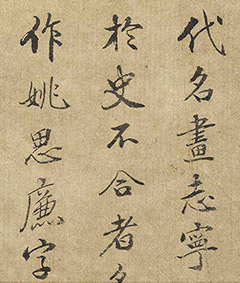 代名畫志寧
於史不合者
作姚思廉字